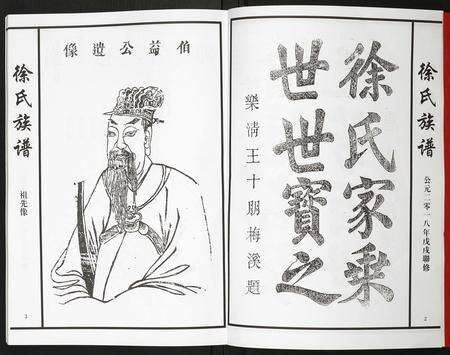 徐氏族谱
公元二零一八年戊戌聯修
2
徐氏家乘
世世寳之
樂清王十朋梅溪題
伯益公遺像
徐氏族谱
祖先像
3